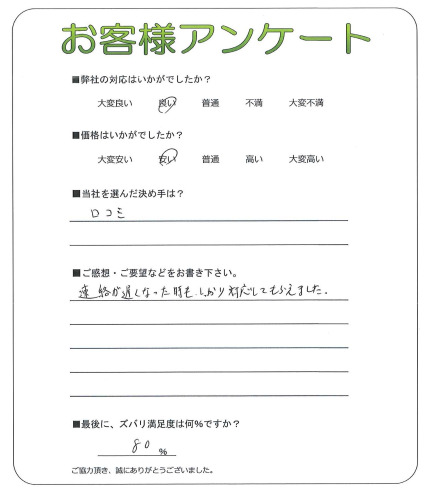 お客様アンケート
■弊社の対応はいかがでしたか？
大変良い 良い 普通 不満 大変不満
■価格はいかがでしたか？
大変安い 安い 普通 高い 大変高い
■当社を選んだ決め手は？
口コミ
■ご感想・ご要望などをお書き下さい。
連絡が遅くなった時も、しっかり対応してもらえました。
■最後に、ズバリ満足度は何%ですか？
80 %
ご協力頂き、誠にありがとうございました。